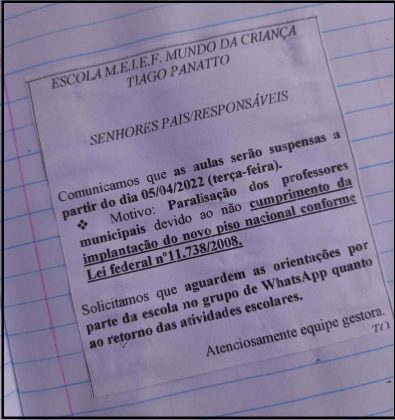 ESCOLA M.E.I.E.F. MUNDO DA CRIANÇA
TIAGO PANATTO
SENHORES PAIS/RESPONSÁVEIS
Comunicamos que as aulas serão suspensas a
partir do dia 05/04/2022 (terça-feira).
❖ Motivo: Paralisação dos professores
municipais devido ao não cumprimento da
implantação do novo piso nacional conforme
Lei federal nº11.738/2008.
Solicitamos que aguardem as orientações por
parte da escola no grupo de WhatsApp quanto
ao retorno das atividades escolares.
Atenciosamente equipe gestora.